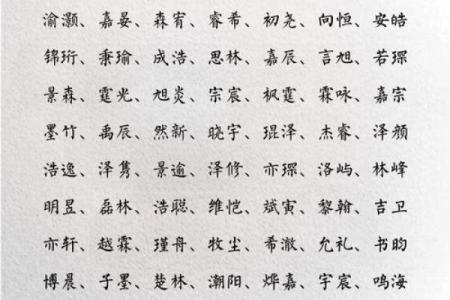 渝灏、嘉晏、森宥、睿希、初尧、向恒、安皓
锦珩、秉瑜、成浩、思林、嘉辰、言旭、若琛
景森、霆光、旭炎、宗宸、枫霆、霖咏、嘉宗
墨竹、禹辰、然新、晓宇、琨泽、杰睿、泽颜
浩逸、泽隽、景逾、泽修、亦琛、洛屿、林峰
明昱、磊林、浩聪、维恺、斌寅、黎翰、吉卫
亦轩、越霖、瑾舟、牧尘、希澈、允礼、书昀
博晨、子墨、楚林、潮阳、烨嘉、宇宸、鸣海